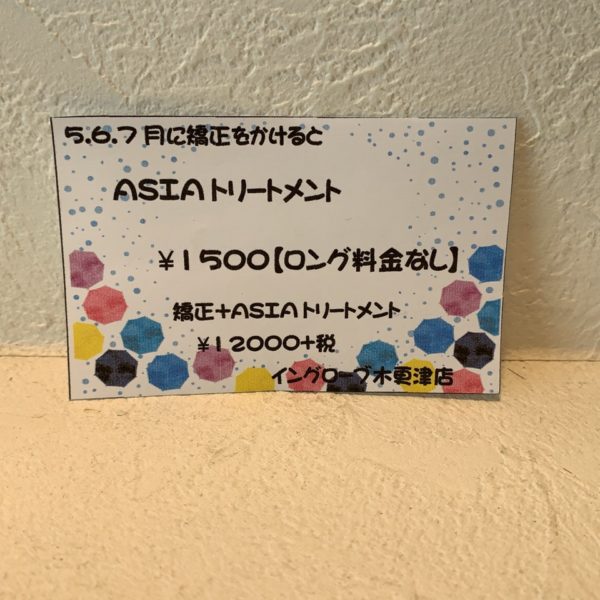 5.6.7月に矯正をかけると
ASIAトリートメント
¥1500【ロング料金なし】
矯正+ASIAトリートメント
¥12000+税
イングローブ木更津店